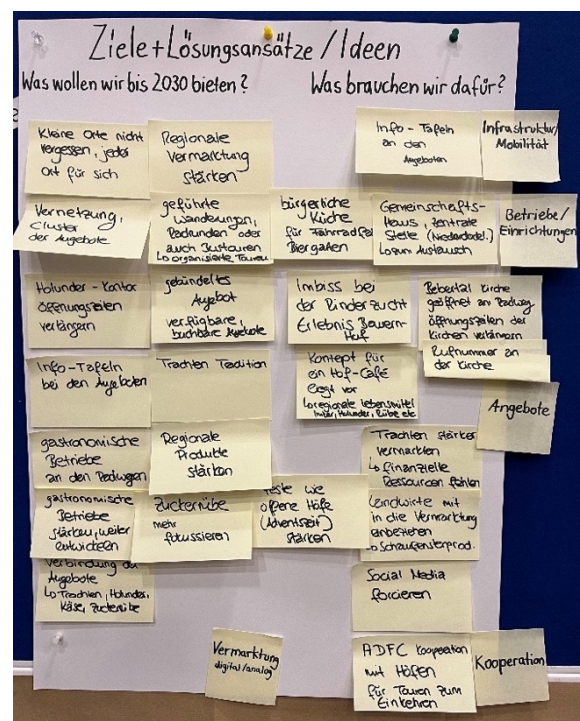 Ziele+Lösungsansätze / Ideen
Was wollen wir bis 2030 bieten?
Was brauchen wir dafür?
Kleine Orte nicht
vergessen, jeder
Ort für sich
Regionale
Vermarktung
stärken
Info-Tafeln
an den
Angeboten
Infrastruktur/
Mobilität
Vernetzung,
Cluster
der Angebote
geführte
Wanderungen,
Radrunden oder
auch
↳ organisierte Touren
bürgerliche
Küche
für
Biergarten
Gemeinschafts-
Haus, zentrale
Stelle
↳ zum Austausch
Betriebe/
Einrichtungen
Holunder-Kontor
Öffnungszeiten
verlängern
gebündeltes
Angebot
verfügbare,
buchbare Angebote
Imbiss bei
der Rinderzucht
Erlebnis Bauern-
Hof
Bebertal Kirche
geöffnet an Radweg
Öffnungszeiten der
Kirchen verlängern
Rufnummer an
der Kirche
Info-Tafeln
bei den Angeboten
Trachten Tradition
Konzept für
ein Hof-Café
liegt vor
↳ regionale Lebensmittel
Holunder, Rübe etc
Angebote
gastronomische
Betriebe
an den Radwegen
Regionale
Produkte
stärken
Trachten stärker
vermarkten
↳ finanzielle
Ressourcen fehlen
gastronomische
Betriebe
stärken, weiter
entwickeln
Zuckerrübe
mehr
fokussieren
Feste wie
offene Höfe
(Adventszeit)
stärken
Landwirte mit
in die Vermarktung
einbeziehen
↳ Schaufensterprod.
Verbindung der
Angebote
↳ Trachten, Holunder,
Käse, Zuckerrübe
Social Media
forcieren
Vermarktung
digital/analog
ADFC Kooperation
mit Höfen
für Touren zum
Einkehren
Kooperation